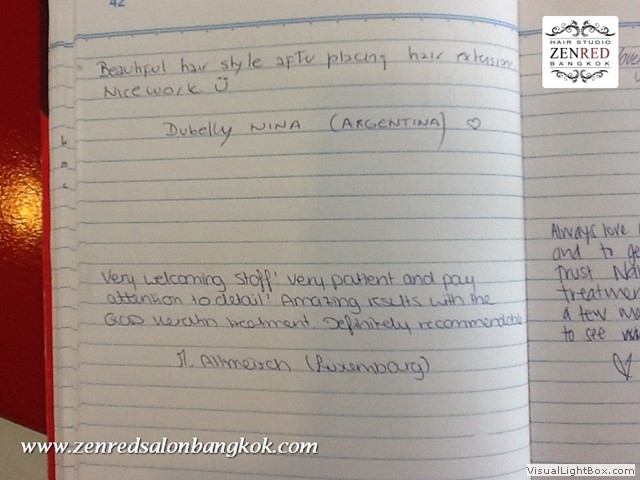 42
HAIR STUDIO
ZENRED
BANGKOK
Beautiful hair style after placing hair extension
Nice work
Dubelly NINA (ARGENTINA) ♡
Very welcoming staff! Very patient and pay
attention to detail! Amazing results with the
Keratin treatment. Definitely recommendable
(Luxembourg)
Always love
and to ge
trust
treatmen
a few
to see
www.zenredsalonbangkok.com
VisualLightBox.com